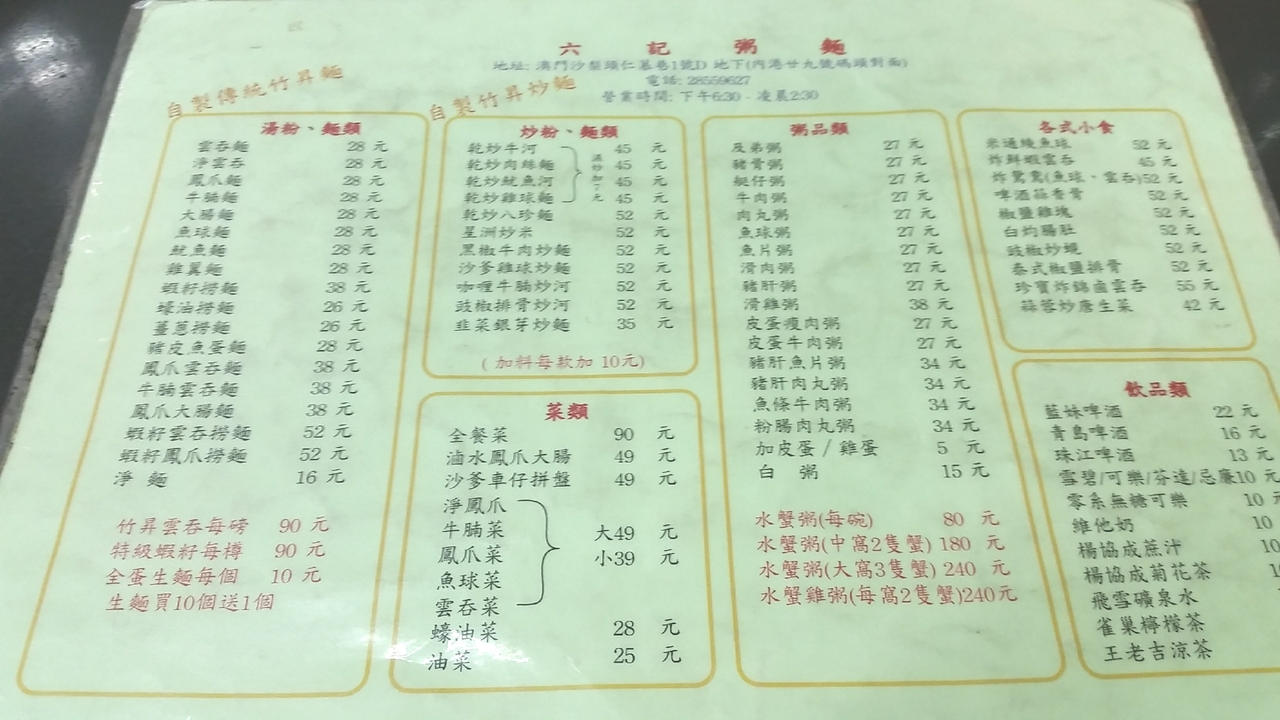 六記粥麵
地址: 澳門沙梨頭仁慕巷1號D 地下(內港廿九號碼頭對面)
電話: 28559627
營業時間: 下午6:30 - 凌晨2:30
自製傳統竹昇麵
湯粉、麵類
雲吞麵 28 元
淨雲吞 28 元
鳳爪麵 28 元
牛腩麵 28 元
大腸麵 28 元
魚球麵 28 元
魷魚麵 28 元
雞翼麵 28 元
蝦籽撈麵 38 元
蠔油撈麵 26 元
薑蔥撈麵 26 元
豬皮魚蛋麵 28 元
鳳爪雲吞麵 38 元
牛腩雲吞麵 38 元
鳳爪大腸麵 38 元
蝦籽雲吞撈麵 52 元
蝦籽鳳爪撈麵 52 元
淨 麵 16 元
竹昇雲吞每磅 90 元
特級蝦籽每樽 90 元
全蛋生麵每個 10 元
生麵買10個送1個
自製竹昇炒麵
炒粉、麵類
乾炒牛河 45 元
乾炒肉絲麵 45 元
乾炒魷魚河 45 元
乾炒雞球麵 45 元
乾炒八珍麵 52 元
星洲炒米 52 元
黑椒牛肉炒麵 52 元
沙爹雞球炒麵 52 元
咖喱牛腩炒河 52 元
豉椒排骨炒河 52 元
韭菜銀芽炒麵 35 元
(加料每款加 10元)
菜類
全餐菜 90 元
滷水鳳爪大腸 49 元
沙爹車仔拼盤 49 元
淨鳳爪
牛腩菜 大49 元
鳳爪菜 小39 元
魚球菜
雲吞菜
蠔油菜 28 元
油菜 25 元
粥品類
及弟粥 27 元
豬骨粥 27 元
艇仔粥 27 元
牛肉粥 27 元
肉丸粥 27 元
魚球粥 27 元
魚片粥 27 元
滑肉粥 27 元
豬肝粥 27 元
滑雞粥 38 元
皮蛋瘦肉粥 27 元
皮蛋牛肉粥 27 元
豬肝魚片粥 34 元
豬肝肉丸粥 34 元
魚條牛肉粥 34 元
粉腸肉丸粥 34 元
加皮蛋 / 雞蛋 5 元
白 粥 15 元
水蟹粥(每碗) 80 元
水蟹粥(中窩2隻蟹) 180 元
水蟹粥(大窩3隻蟹) 240 元
水蟹雞粥(每窩2隻蟹)240元
各式小食
米通綾魚球 52 元
炸鮮蝦雲吞 45 元
炸鴛鴦(魚球、雲吞)52 元
啤酒蒜香骨 52 元
椒鹽雞塊 52 元
白灼腸肚 52 元
豉椒炒蜆 52 元
泰式椒鹽排骨 52 元
珍寶炸錦鹵雲吞 55 元
蒜蓉炒唐生菜 42 元
飲品類
藍妹啤酒 22 元
青島啤酒 16 元
珠江啤酒 13 元
雪碧/可樂/芬達/忌廉10 元
零系無糖可樂 10 元
維他奶 10
楊協成蔗汁 10
楊協成菊花茶
飛雪礦泉水
雀巢檸檬茶
王老吉涼茶